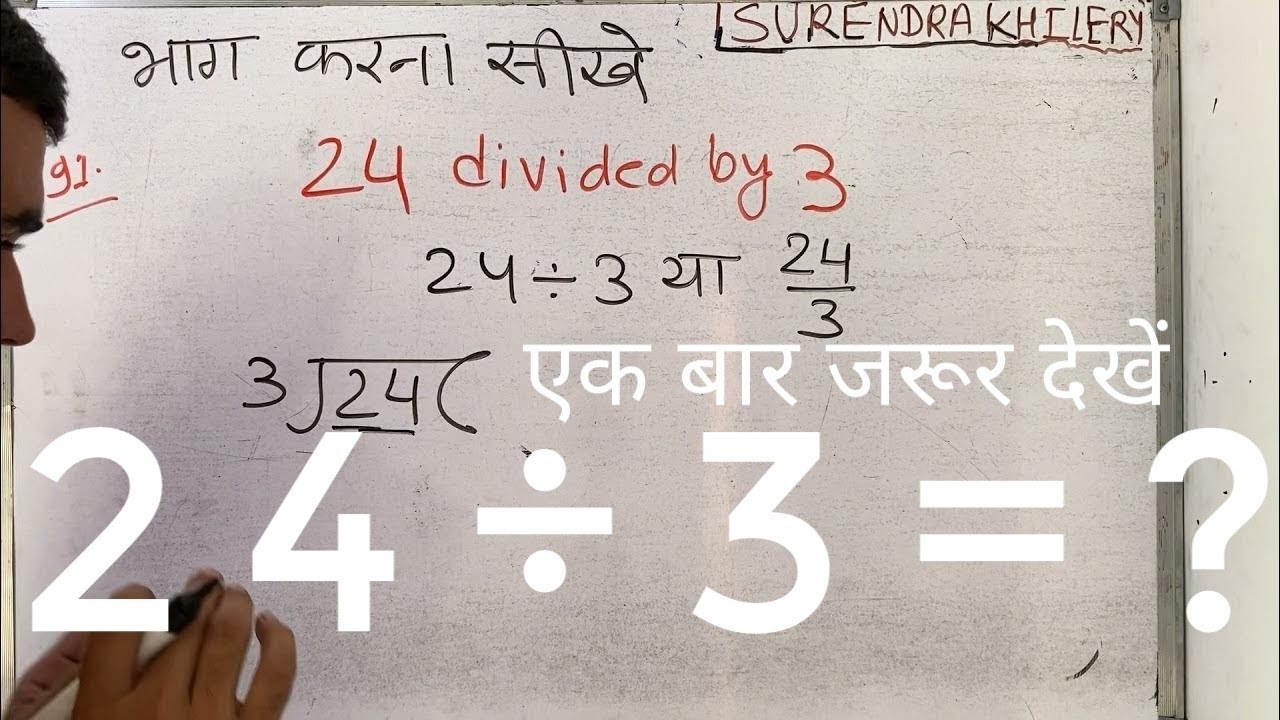 SURENDRA KHILERY
भाग करना सीखे
91.
24 divided by 3
24 ÷ 3 या 24/3
एक बार जरूर देखें
3 ) 24 (
24 ÷ 3 = ?